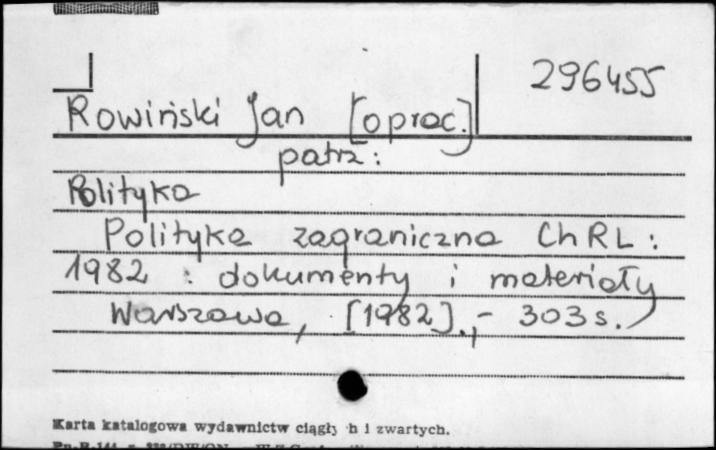 296455
Rowiński Jan [oprac.]
patrz:
Polityka
Polityka zagraniczna ChRL:
1982 : dokumenty i materiały
Warszawa, [1982]., - 303 s.
Karta katalogowa wydawnictw ciągły h i zwartych.